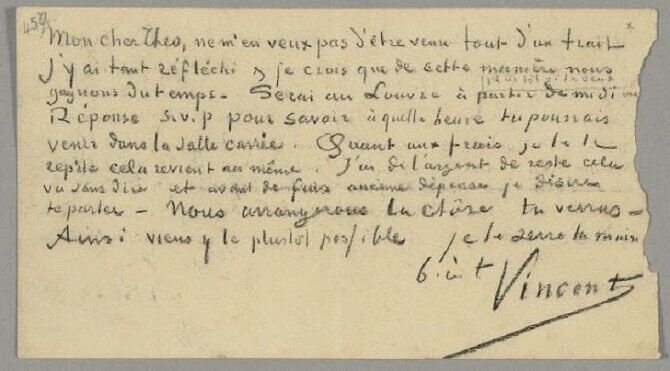 459
x
Mon cher Theo, ne m'en veux pas d'être venu tout d'un trait
J'y ai tant réfléchi & je crois que de cette manière nous
gagnons du temps - Serai au Louvre à partir de midi ou
plus tôt si tu veux
Réponse s.v.p pour savoir à quelle heure tu pourrais
venir dans la salle carrée. Quant aux frais je te le
repète cela revient au même. J'ai de l'argent de reste cela
va sans dire et avant de faire aucune dépense je désire
te parler - Nous arrangerons la chôse tu verras -
Ainsi viens y le plustot possible je te serre la main
b. à t
Vincent